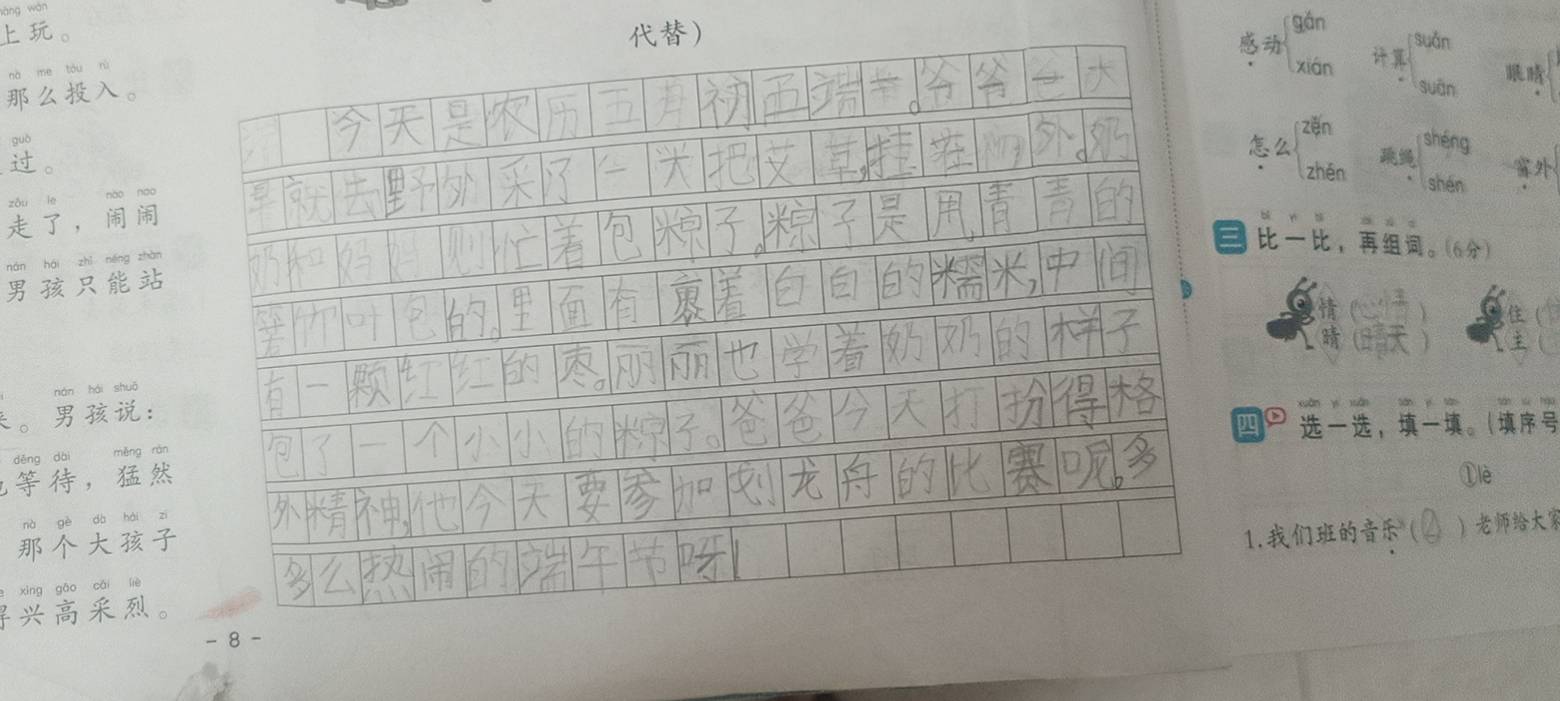 上玩。
nà me tóu rù
那么投入。
guò
过。
zǒu le nào nao
走了，闹闹
nán hái zhǐ néng zhàn
男孩只能站
nán hái shuō
。男孩说：
děng dài měng rán
等待，猛然
nà gè dà hái zi
那个大孩子
xìng gāo cǎi liè
兴高采烈。
- 8 -
代替）
今天是农历五月初五端午。爷爷一大
早就去野外采了一大把艾草，挂在门外。奶
奶和妈妈则忙着包粽子。粽子是用青青的
箬竹叶包的。里面有裹着白白的糯米，中间
有一颗红红的枣。丽丽也学着奶奶的样子
包了一个小小的粽子。爸爸今天打扮得格
外精神，他今天要参加划龙舟的比赛呢。多
多么热闹的端午节呀！
感动 gǎn xián
计算 suǎn suàn
眼睛
怎么 zěn zhěn
跳绳 shéng shén
窗外
三 比一比，再组词。（6分）
情（心情）
晴（晴天）
住（
主（
xuǎn yi xuǎn tián yi tián
四 选一选，填一填。（填序号
①lè
1.我们班的音乐（②）老师给大家